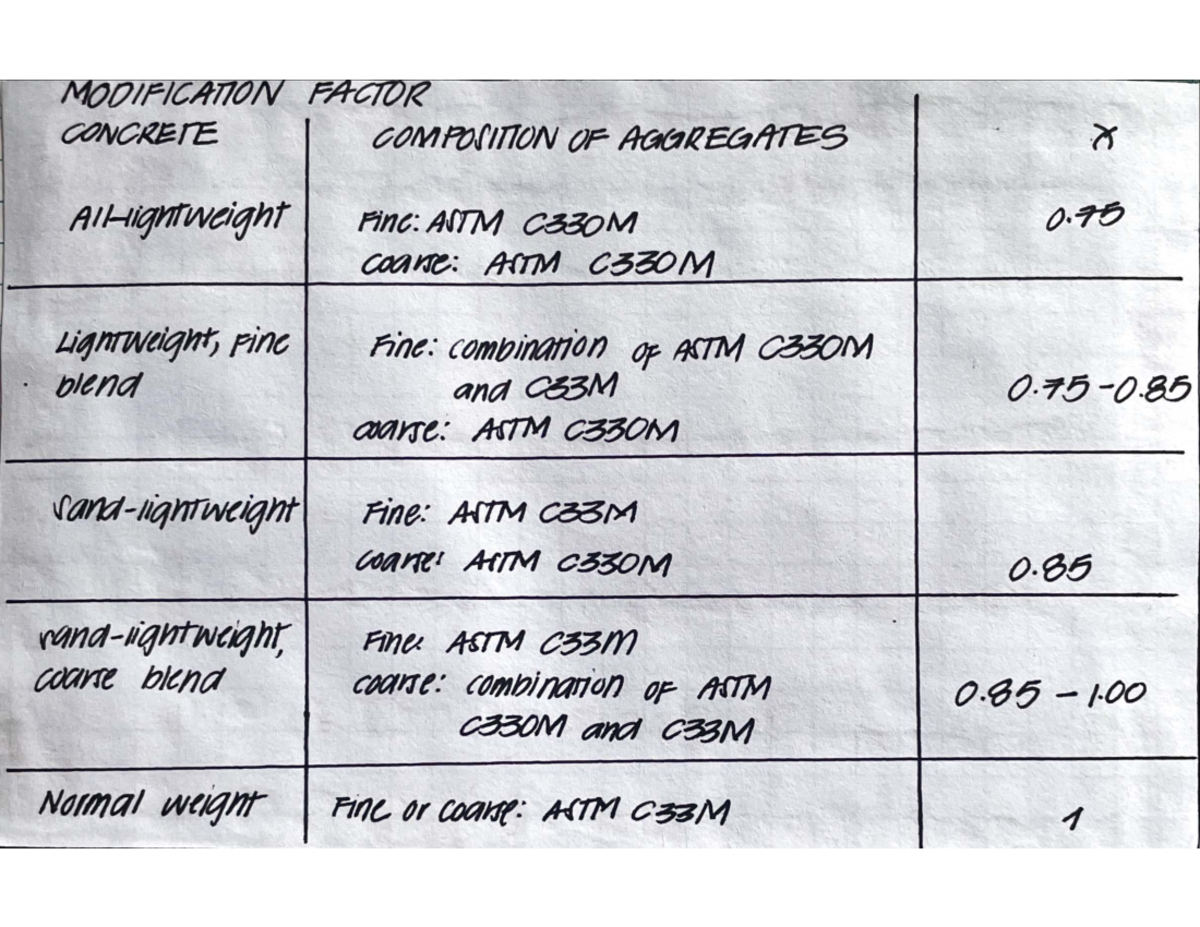 MODIFICATION FACTOR
CONCRETE COMPOSITION OF AGGREGATES λ
All-lightweight Fine: ASTM C330M 0.75
coarse: ASTM C330M
Lightweight, Fine Fine: combination of ASTM C330M
blend and C33M 0.75-0.85
coarse: ASTM C330M
Sand-lightweight Fine: ASTM C33M
coarse: ASTM C330M 0.85
sand-lightweight, Fine: ASTM C33M
coarse blend coarse: combination of ASTM 0.85 - 1.00
C330M and C33M
Normal weight Fine or coarse: ASTM C33M 1